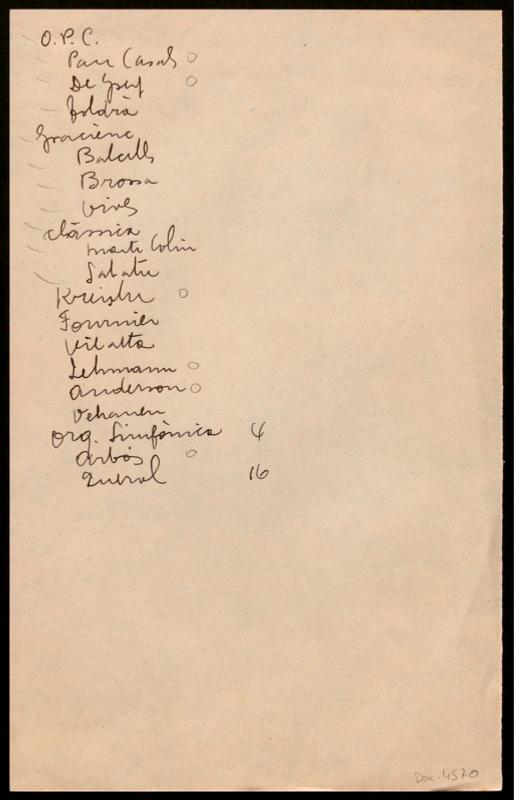 O.P.C.
Pau Casals o
De Ysef o
Toldrà
Gracienc
Balcells
Brossa
Vives
Clàssica
Marti Colin
Sabater
Kreisler o
Fournier
Vilalta
Lehmann o
Anderson o
Vehanen
Orq. Simfònica 4
Arbós o
Querol 16
Doc. 4570